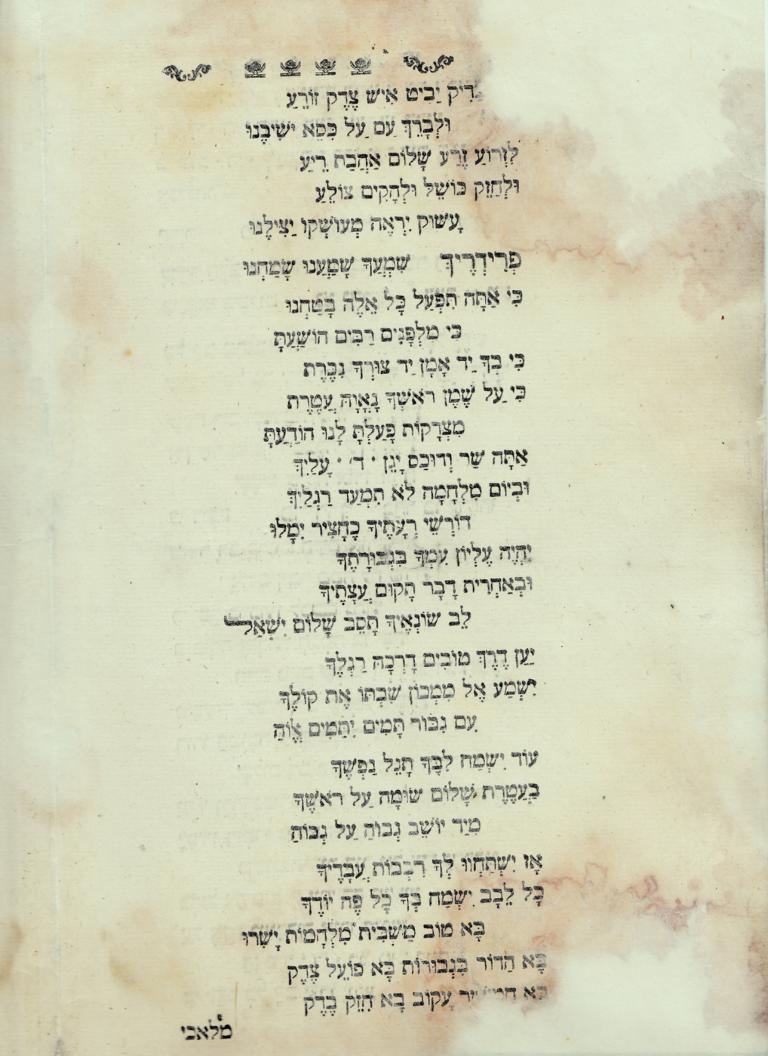 צדיק יַבִּיט אִישׁ צֶדֶק זוֹרֵעַ
וּלְבָרֵךְ עַם עַל כִּסֵּא יְשִׁיבֶנּוּ
לִזְרוֹעַ זֶרַע שָׁלוֹם אַהֲבַת רֵיעַ
וּלְחַזֵּק כּוֹשֵׁל וּלְהָקִים צוֹלֵעַ
עָשׁוּק יִרְאֶה מְעוֹשְׁקוֹ יַצִּילֶנּוּ
פְרִידְרֶיךְ שִׁמְעֲךָ שָׁמַעְנוּ שָׂמַחְנוּ
כִּי אַתָּה תִפְעַל כָּל אֵלֶּה בָּטַחְנוּ
כִּי מִלְּפָנִים רַבִּים הוֹשַׁעְתָּ
כִּי בְךָ יַד אָמָן יַד צוּרְךָ גִבֶּרֶת
כִּי עַל שֶׁמֶן רֹאשְׁךָ גַּאֲוָה עֲטֶרֶת
מִצִּדְקוֹת פָּעַלְתָּ לָנוּ הוֹדַעְתָּ
אַתָּה שַׂר וְדוּכַּס יָגֵן ' ד' ' עָלֶיךָ
וּבְיוֹם מִלְחָמָה לֹא תִמְעַד רַגְלֶיךָ
דּוֹרְשֵׁי רָעָתֶיךָ כֶּחָצִיר יִמָּלוּ
יִהְיֶה עֶלְיוֹן עִמְּךָ בִּגְבוּרָתֶךָ
וּבְאַחֲרִית דָבָר תָּקוּם עֲצָתֶיךָ
לֵב שׂוֹנְאֶיךָ תָּסֵב שָׁלוֹם יִשְׁאָלוּ
יַעַן דֶּרֶךְ טוֹבִים דָּרְכָה רַגְלֶךָ
יִשְׁמַע אֵל מִמְּכוֹן שִׁבְתּוֹ אֶת קוֹלֶךָ
עִם גִּבּוֹר תָּמִים יִתַּמִּים אֱלוֹהַּ
עוֹד יִשְׂמַח לִבֶּךָ תָגֵל נַפְשֶׁךָ
בַּעֲטֶרֶת שָׁלוֹם שׂוּמָה עַל רֹאשֶׁךָ
מִיַּד יוֹשֵׁב גָּבוֹהַּ עַל גָּבוֹהַּ
אָז יִשְׁתַּחֲווּ לְךָ רִבְבוֹת עֲבָדֶיךָ
כָּל לֵבָב יִשְׂמַח בְּךָ כָּל פֶּה יוֹדֶךָּ
בָּא טוֹב מַשְׁבִּית מִלְחָמוֹת יָשִׁירוּ
בָּא הָדוּר בִּגְבוּרוֹת בָּא פוֹעֵל צֶדֶק
בָּא עָקוֹב בָּא חִזֵּק בֶּדֶק
מלאכי